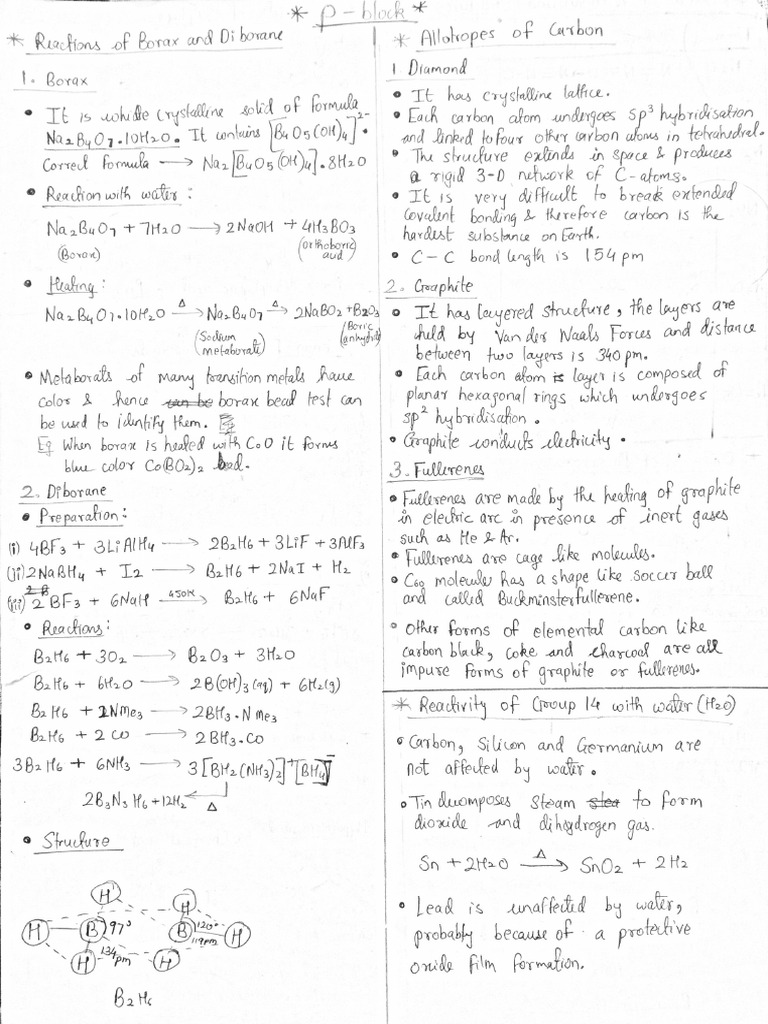 * p-block *
* Reactions of Borax and Diborane
1. Borax
• It is whide crystalline solid of formula
Na2B4O7.10H2O. It contains [B4O5(OH)4]2-.
Correct formula → Na2[B4O5(OH)4].8H2O
• Reaction with water:
Na2B4O7 + 7H2O → 2NaOH + 4H3BO3
(Borax) (orthoboric
acid)
• Heating:
Na2B4O7.10H2O →Δ Na2B4O7 →Δ 2NaBO2 + B2O3
(Sodium (Boric
metaborate) anhydrite)
• Metaborats of many transition metals have
color & hence can be borax bead test can
be used to identify them. Eg
Eg When borax is heated with CoO it forms
blue color Co(BO2)2 bed.
2. Diborane
• Preparation:
(i) 4BF3 + 3LiAlH4 → 2B2H6 + 3LiF + 3AlF3
(ii) 2NaBH4 + I2 → B2H6 + 2NaI + H2
(iii) 2BF3 + 6NaH →450K B2H6 + 6NaF
• Reactions:
B2H6 + 3O2 → B2O3 + 3H2O
B2H6 + 6H2O → 2B(OH)3(aq) + 6H2(g)
B2H6 + 2NMe3 → 2BH3.NMe3
B2H6 + 2CO → 2BH3.CO
3B2H6 + 6NH3 → 3[BH2(NH3)2]+[BH4]-
2B3N3H6 + 12H2 ← Δ
• Structure
H H
H B 97° B 120° H
119pm
H 134pm H
B2H6
* Allotropes of Carbon
1. Diamond
• It has crystalline lattice.
• Each carbon atom undergoes sp3 hybridisation
and linked to four other carbon atoms in tetrahedral.
• The structure extends in space & produces
a rigid 3-D network of C-atoms.
• It is very difficult to break extended
covalent bonding & therefore carbon is the
hardest substance on Earth.
• C-C bond length is 154 pm
2. Graphite
• It has layered structure, the layers are
held by Van der Waals Forces and distance
between two layers is 340 pm.
• Each carbon atom is layer is composed of
planar hexagonal rings which undergoes
sp2 hybridisation.
• Graphite conducts electricity.
3. Fullerenes
• Fullerenes are made by the heating of graphite
in electric arc in presence of inert gases
such as He & Ar.
• Fullerenes are cage like molecules.
• C60 molecule has a shape like soccer ball
and called Buckminsterfullerene.
• Other forms of elemental carbon like
carbon black, coke and charcoal are all
impure forms of graphite or fullerenes.
* Reactivity of Group 14 with water (H2O)
• Carbon, Silicon and Germanium are
not affected by water.
• Tin decomposes steam stea to form
dioxide and dihydrogen gas.
Sn + 2H2O →Δ SnO2 + 2H2
• Lead is unaffected by water,
probably because of a protective
oxide film formation.